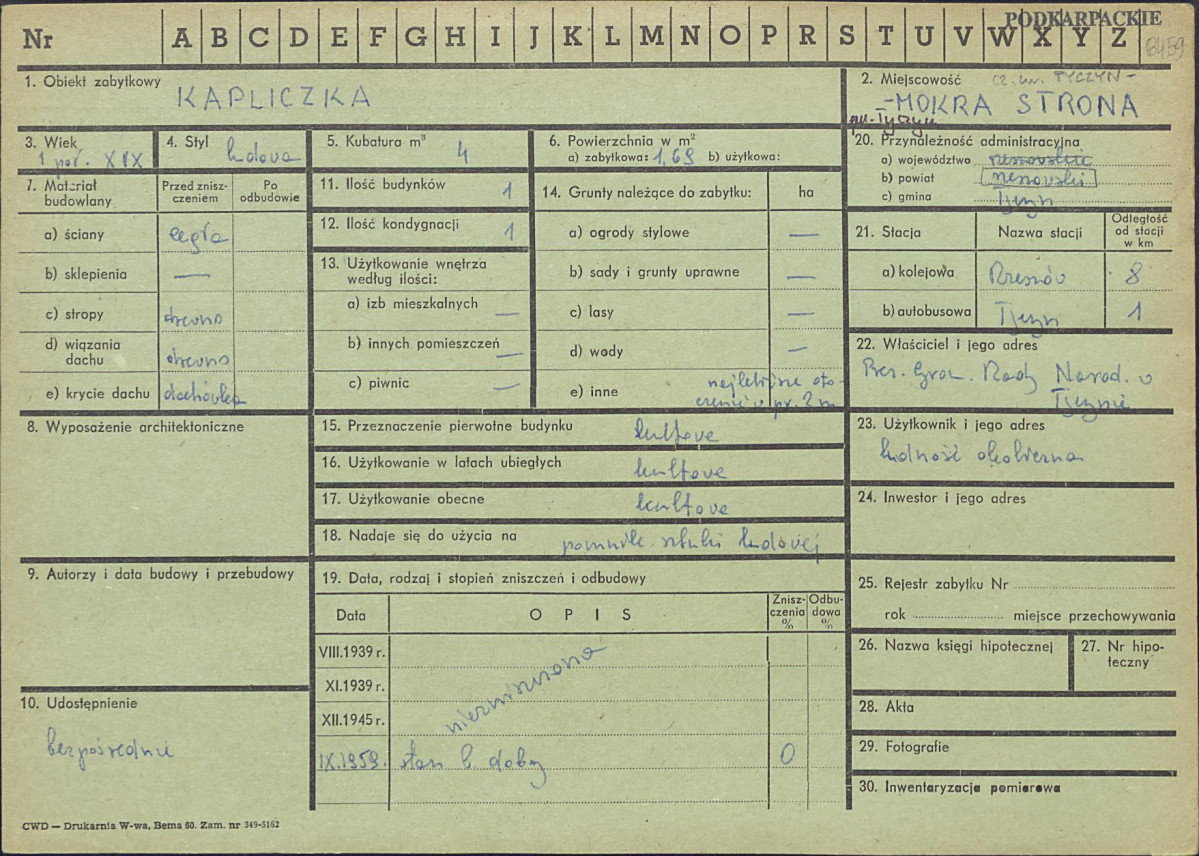 PODKARPACKIE
Nr A B C D E F G H I J K L M N O P R S T U V W X Y Z
8459
1. Obiekt zabytkowy
KAPLICZKA
2. Miejscowość cz. m. TYCZYN -
- MOKRA STRONA
gm. Tyczyn
3. Wiek
1 poł. XIX
4. Styl
ludowa
5. Kubatura m³
4
6. Powierzchnia w m²
a) zabytkowa: 1,69 b) użytkowa:
20. Przynależność administracyjna
a) województwo rzeszowskie
b) powiat rzeszowski
c) gmina Tyczyn
7. Materiał budowlany
Przed znisz-
czeniem
Po
odbudowie
a) ściany cegła
b) sklepienia —
c) stropy drewno
d) wiązania
dachu drewno
e) krycie dachu dachówka
11. Ilość budynków 1
12. Ilość kondygnacji 1
13. Użytkowanie wnętrza
według ilości:
a) izb mieszkalnych —
b) innych pomieszczeń —
c) piwnic —
14. Grunty należące do zabytku: ha
a) ogrody stylowe —
b) sady i grunty uprawne —
c) lasy —
d) wody —
e) inne najbliższe oto-
czenie w pr. 2 m
21. Stacja Nazwa stacji
Odległość
od stacji
w km
a) kolejowa Rzeszów 8
b) autobusowa Tyczyn 1
22. Właściciel i jego adres
Prez. Grom. Rady Narod. w
Tyczynie
8. Wyposażenie architektoniczne
15. Przeznaczenie pierwotne budynku kultowe
16. Użytkowanie w latach ubiegłych kultowe
17. Użytkowanie obecne kultowe
18. Nadaje się do użycia na pomnik sztuki ludowej
23. Użytkownik i jego adres
ludność okoliczna
24. Inwestor i jego adres
9. Autorzy i data budowy i przebudowy
19. Data, rodzaj i stopień zniszczeń i odbudowy
Data OPIS
Znisz-
czenia
%
Odbu-
dowa
%
VIII.1939 r.
XI.1939 r.
XII.1945 r.
niezniszczona
IX.1959. stan b. dobry 0
25. Rejestr zabytku Nr
rok miejsce przechowywania
26. Nazwa księgi hipotecznej
27. Nr hipo-
teczny
10. Udostępnienie
bezpośrednie
28. Akta
29. Fotografie
30. Inwentaryzacja pomiarowa
CWD — Drukarnia W-wa, Bema 60. Zam. nr 349-5162